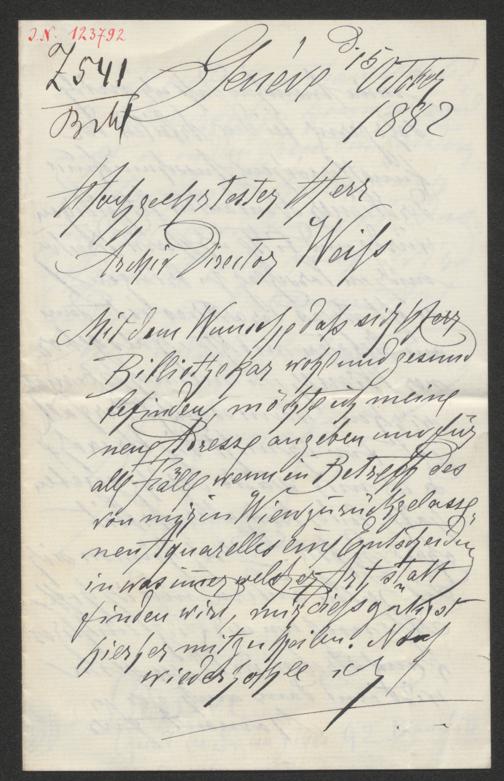 J.N. 123792
Z 541
Genève d. 15 October
1882
Hochgeehrtester Herr
Archiv Director Weiß
Mit dem Wunsche daß sich Herr
Bibliothekar wohl und gesund
befinden, möchte ich meine
neue Adresse angeben und für
alle Fälle wenn in Betreff des
von mir in Wien zurückgelasse-
nen Aquarelles eine Entscheidung
in was immer welcher Art, statt
finden wird, mir dieß gütigst
hierher mitzutheilen. Noch
wiederhohle ich